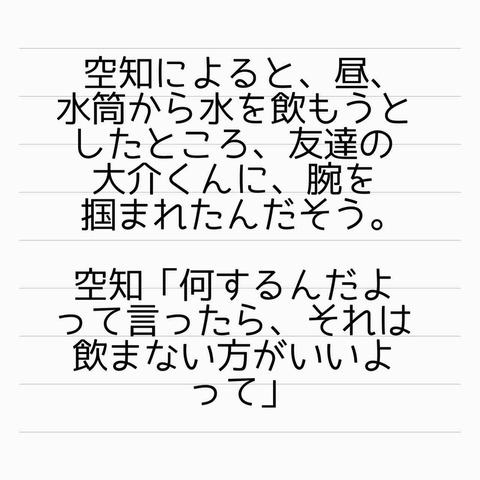 空知によると、昼、
水筒から水を飲もうと
したところ、友達の
大介くんに、腕を
掴まれたんだそう。
空知「何するんだよ
って言ったら、それは
飲まない方がいいよ
って」